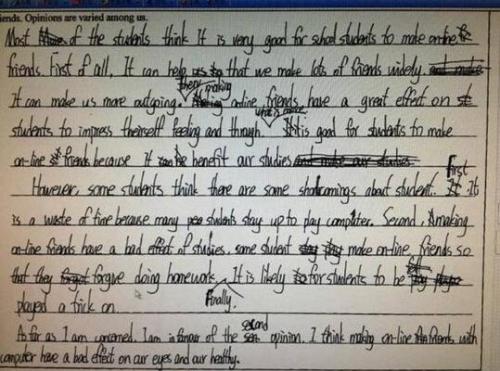 iends. Opinions are varied among us.
Most of the students think It is very good for school students to make online
friends. First of all, It can help that we make lots of friends widely
It can make us more outgoing. making online friends have a great effect on
students to impress theirself feeling and though. what is more It is good for students to make
on-line friends because it can benefit our studies
However, some students think there are some shortcomings about student. First It
is a waste of time because many students stay up to play computer. Second. making
on-line friends have a bad effect of studies. some student make on-line friends so
that they forgive doing homework. Finally. It is likely for students to be
played a trick on.
As far as I am concerned. I am in favour of the second opinion. I think making on-line friends with
computer have a bad effect on our eyes and our healthy.